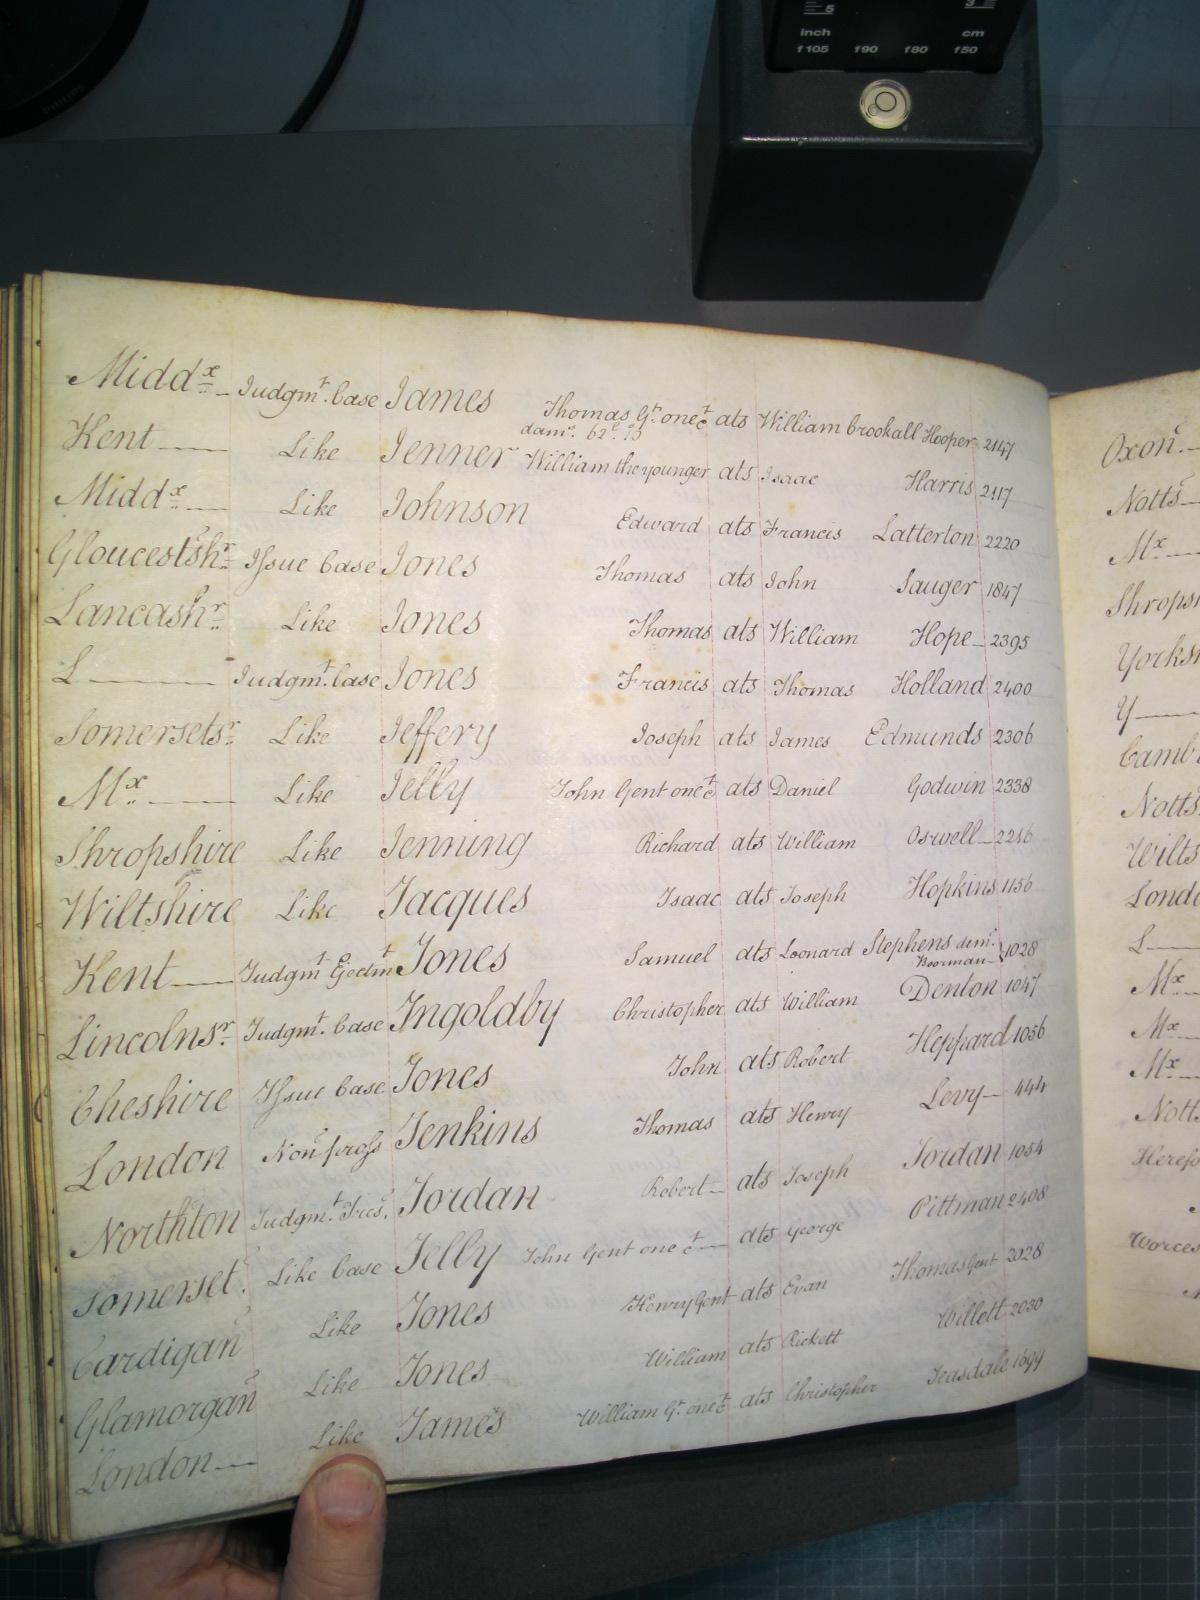 5 3
inch cm
f105 f90 f80 f50
Midd.x Judgmt. Case James Thomas Gt. one &ct ats William Crookall Hooper 2147
dam.s 62£.13
Kent Like Jenner William the younger ats Isaac Harris 2117
Midd.x Like Johnson Edward ats Francis Latterton 2220
Gloucestshr. Issue Case Jones Thomas ats John Sauger 1847
Lancashr. Like Jones Thomas ats William Hope 2395
L Judgmt. Case Jones Francis ats Thomas Holland 2400
Somersetsr. Like Jeffery Joseph ats James Edmunds 2306
Mx. Like Jelly John Gent one &ct ats Daniel Godwin 2338
Shropshire Like Jenning Richard ats William Oswell 2256
Wiltshire Like Jacques Isaac ats Joseph Hopkins 1156
Kent Judgmt Ejectmt Jones Samuel ats Leonard Stephens dem.
Boorman 1028
Lincolnsr. Judgmt. Case Ingoldby Christopher ats William Denton 1047
Cheshire Issue Case Jones John ats Robert Heppard 1056
London Non pross Jenkins Thomas ats Henry Levy 444
Northton Judgmt. Tres. Jordan Robert ats Joseph Jordan 1054
Somerset. Like Case Jelly John Gent one &ct ats George Pittman 2408
Cardigan Like Jones Henry Gent ats Evan Thomas Gent 2028
Glamorgan Like Jones William ats Rickett Willett 2030
London Like James William Gt. one &ct ats Christopher Teasdale 1699
Oxon.
Notts
Mx.
Shrops
Yorksh
Y
Camb
Notts
Wilts
Londo
L
Mx
Mx
Mx
Notts
Herefo
Worces